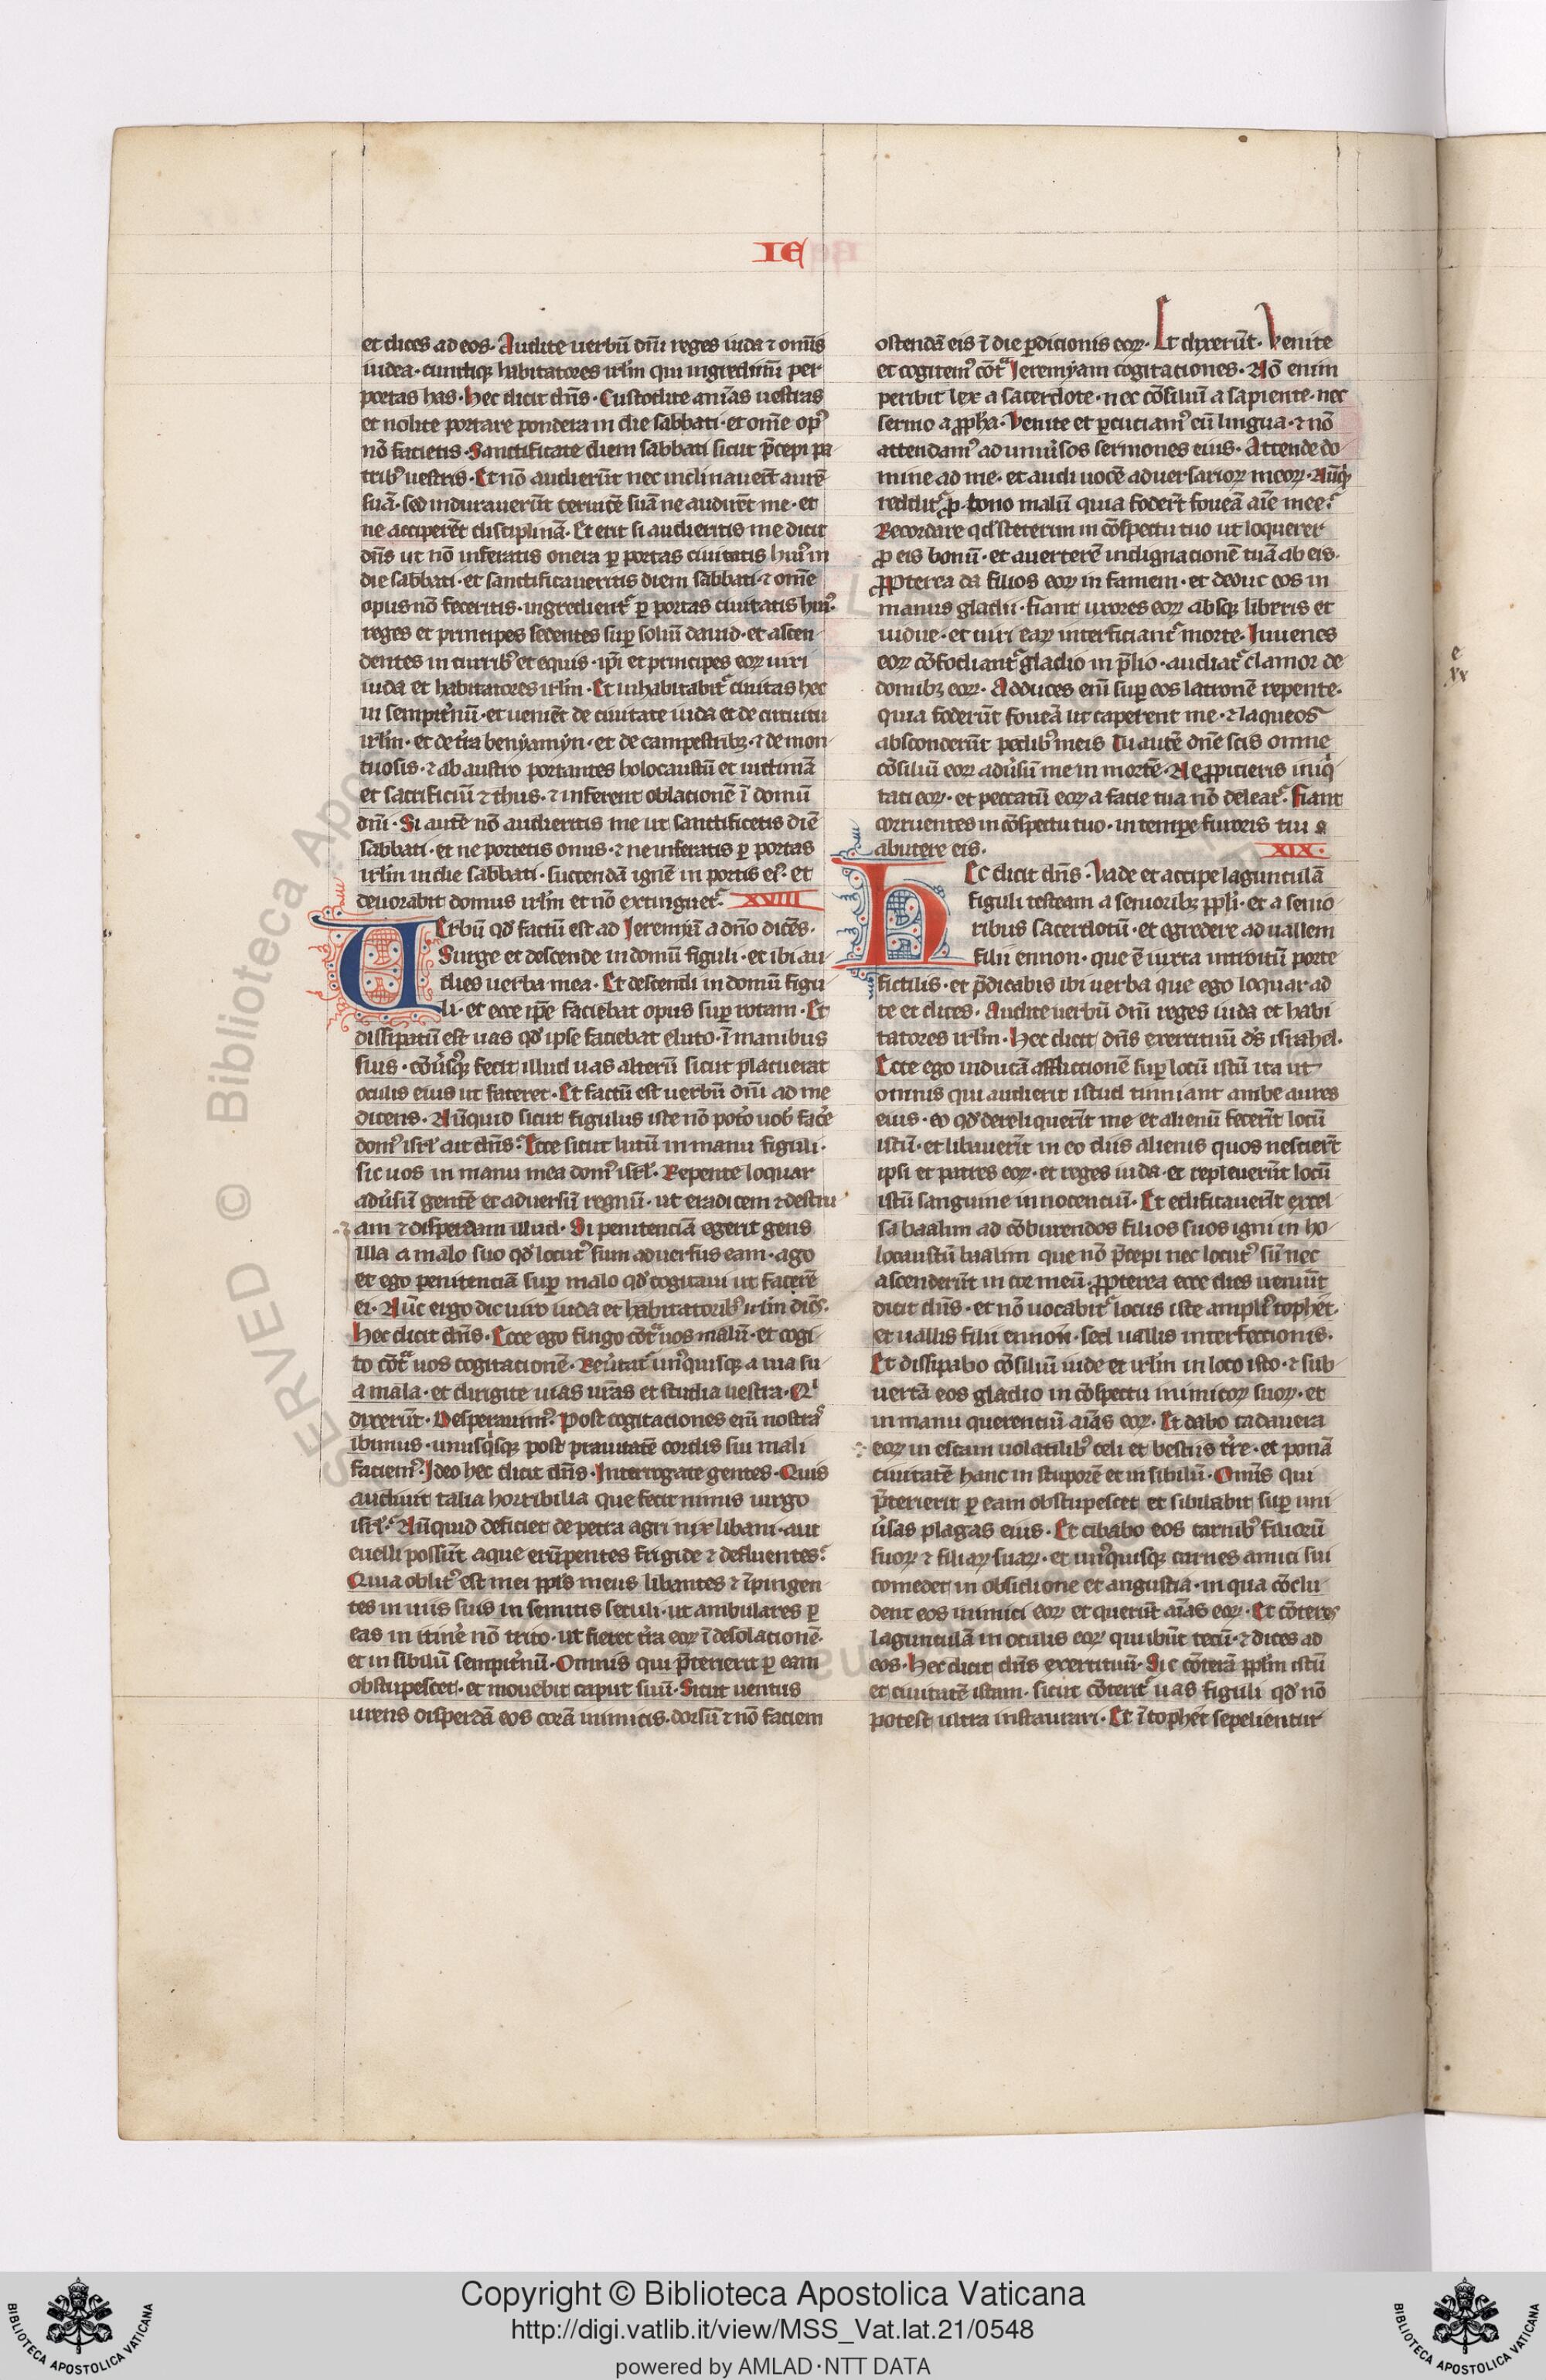 IE
et dices ad eos· Audite uerbū dn̄i reges iuda ⁊ om̄is
iudea· cunctiqꝫ habitatores irl̄m qui ingredimī per
portas has· Hec dicit dn̄s· Custodite anīas uestras
et nolite portare pondera in die sabbati· et om̄e opꝰ
nō facietis· Sanctificate diem sabbati sicut p̄cepi pa
tribꝰ uestris· Et nō audierūt nec inclinauerūt aurē
suā· sed indurauerūt ceruicē suā ne audirēt me· et
ne acciperēt disciplinā· Et erit si audieritis me dicit
dn̄s ut nō inferatis onera ꝑ portas ciuitatis huiꝰ in
die sabbati· et sanctificaueritis diem sabbati· ⁊ om̄e
opus nō feceritis· ingredient᷑ ꝑ portas ciuitatis huiꝰ·
reges et principes sedentes suꝑ soliū dauid· et ascen
dentes in curribꝰ et equis· ip̄i et principes eoꝝ uiri
iuda et habitatores irl̄m· Et inhabitabit᷑ ciuitas hec
in sempit̉nū· et ueniēt de ciuitate iuda et de circuitu
irl̄m· et de tr̄a benyamyn· et de campestribꝫ· ⁊ de mon
tuosis· ⁊ ab austro portantes holocaustū et uictimā
et sacrificiū ⁊ thus· ⁊ inferent oblacionē ī domū
dn̄i· Si autē nō audieritis me ut sanctificetis diē
sabbati· et ne portetis onus· ⁊ ne inferatis ꝑ portas
irl̄m in die sabbati· succendā ignē in portis eiꝰ· et
deuorabit domus irl̄m et nō extinguet᷑· XVIII
UErbū qd̓ factū est ad Jeremiā a dn̄o dicēs·
Surge et descende in domū figuli· et ibi au
dies uerba mea· Et descendi in domū figu
li· et ecce ip̄e faciebat opus suꝑ rotam· Et
dissipatū est uas qd̓ ipse faciebat eluto· ī manibus
suis· cōūsꝰqꝫ fecit illud uas alterū sicut placuerat
oculis eius ut faceret· Et factū est uerbū dn̄i ad me
dicens· Nūquid sicut figulus iste nō potō uob̓ face̓
domꝰ isrl̓ ait dn̄s· Ecce sicut lutū in manu figuli·
sic uos in manu mea domꝰ isrl̓· Repente loquar
adūsū gentē et aduersū regnū· ut eradicem ⁊ destru
am ⁊ disperdam illud· Si penitenciā egerit gens
illa a malo suo qd̓ locutꝰ sum aduersus eam· ago
et ego penitenciā suꝑ malo qd̓ cogitaui ut facerē
ei· Nūc ergo dic uiro iuda et habitatoribꝰ irl̄m dicēs·
Hec dicit dn̄s· Ecce ego fingo cōt̄ uos malū· et cogi
to cōt̄ uos cogitacionē· Reūtat᷑ unꝰquisqꝫ a uia su
a mala· et dirigite uias ur̄as et studia uestra· Qⁱ
dixerūt· Desperauimꝰ· Post cogitaciones em̄ nostras
ibimus· unusq̓sqꝫ post prauitatē cordis sui mali
faciemꝰ· Ideo hec dicit dn̄s· Interrogate gentes· Quis
audiuit talia horribilia que fecit nimis uirgo
isrl̓· Nūquid deficiet de petra agri nix libani· aut
euelli possūt aque erūpentes frigide ⁊ defluentes·
Quia oblitꝰ est mei pp̄ls meus libantes ⁊ īpingen
tes in uiis suis in semitis seculi· ut ambulares ꝑ
eas in itine̓ nō trito· ut fieret tr̄a eoꝝ ī desolacionē·
et in sibilū sempit̉nū· Omnis qui p̄terierit ꝑ eam
obstupescet· et mouebit caput suū· Sicut uentus
urens disperdā eos corā inimicis· dorsū ⁊ nō faciem
ostendā eis ī die ꝑdicionis eoꝝ· Et dyxerūt· Venite
et cogitemꝰ cōt̄ Jeremyam cogitaciones· Nō enim
peribit lex a sacerdote· nec cōsiliū a sapiente· nec
sermo a ꝓph̄a· Venite et ꝑcuciamꝰ eū lingua· ⁊ nō
attendamꝰ ad uniūsos sermones eius· Attende do
mine ad me· et audi uocē aduersarioꝝ meoꝝ· Nūqꝫ
reddit᷑ ꝓ bono malū quia foderūt foueā aīe mee·
Recordare qd̓ steterim in cōspectu tuo ut loquerer
ꝓ eis bonū· et auerterē indignacionē tuā ab eis·
Propterea da filios eoꝝ in famem· et deduc eos in
manus gladii· fiant uxores eoꝝ absqꝫ liberis et
uidue· et uiri eaꝝ interficiant᷑ morte· Iuuenes
eoꝝ cōfodiant᷑ gladio in p̄lio· audiat᷑ clamor de
domibꝫ eoꝝ· Adduces em̄ suꝑ eos latronē repente·
quia foderūt foueā ut caperent me· ⁊ laqueos
absconderūt pedibꝰ meis Tu autē dn̄e scis omne
cōsiliū eoꝝ adūsū me in mortē· Ne ꝓpicieris iniq̓
tati eoꝝ· et peccatū eoꝝ a facie tua nō deleat᷑· Fiant
corruentes in cōspectu tuo· in tempe furoris tui
abutere eis· XIX·
HEc dicit dn̄s· Uade et accipe lagunculā
figuli testeam a senioribꝫ pp̄li· et a senio
ribus sacerdotū· et egredere ad uallem
filii ennon· que ē iuxta introitū porte
fictilis· et p̄dicabis ibi uerba que ego loquar ad
te et dices· Audite uerbū dn̄i reges iuda et habi
tatores irl̄m· Hec dicit dn̄s exercituū ds̄ israhel·
Ecce ego inducā afflictionē suꝑ locū istū ita ut
omnis qui audierit istud tinniant ambe aures
eius· eo qd̓ dereliquerūt me et alienū fecerūt locū
istū· et libauerūt in eo diis alienis quos nescierūt
ipsi et patres eoꝝ· et reges iuda· et repleuerūt locū
istū sanguine innocenciū· Et edificauerūt excel
sa baalim ad cōburendos filios suos igni in ho
locaustū baalim que nō p̄cepi nec locutꝰ sū nec
ascenderūt in cor meū· Propterea ecce dies ueniūt
dicit dn̄s· et nō uocabit᷑ locus iste ampliꝰ tophet·
et uallis filii ennon· sed uallis interfectionis·
Et dissipabo cōsiliū iude et irl̄m in loco isto· ⁊ sub
uertā eos gladio in cōspectu inimicoꝝ suoꝝ· et
in manu querentiū aīas eoꝝ· Et dabo cadauera
eoꝝ in escam uolatilibꝰ celi et bestiis tr̄re· et ponā
ciuitatē hanc in stuporē et in sibilū· Omīs qui
p̄terierit ꝑ eam obstupescet et sibilabit suꝑ uni
ūsas plagas eius· Et cibabo eos carnibꝰ filiorū
suoꝝ ⁊ filiaꝝ suaꝝ· et unꝰquisqꝫ carnes amici sui
comedet in obsidione et angustia· in qua cōclu
dent eos inimici eoꝝ et querūt aīas eoꝝ· Et cōteres
lagunculā in oculis eoꝝ qui ibūt tecū· ⁊ dices ad
eos· Hec dicit dn̄s exercituū· Sic cōterā pp̄lm istū
et ciuitatē istam· sicut cōterit᷑ uas figuli qd̓ nō
potest ultra instaurari· Et ī tophet sepelientur
Copyright © Biblioteca Apostolica Vaticana
http://digi.vatlib.it/view/MSS_Vat.lat.21/0548
powered by AMLAD·NTT DATA
BIBLIOTECA APOSTOLICA VATICANA
BIBLIOTECA APOSTOLICA VATICANA